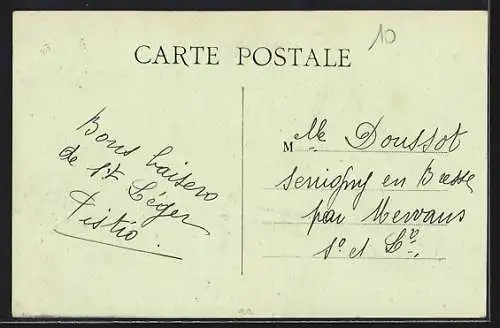 10
CARTE POSTALE
Bons baisers
de St Léger
M elle Doussot
Serrigny en Bresse
par Mervans
S. et L.